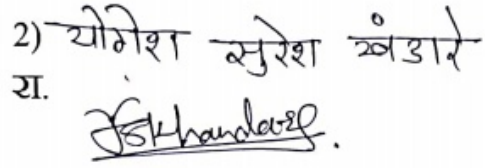 2) योगेश सुरेश खंडारे
रा.